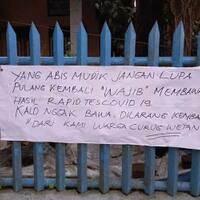 YANG ABIS MUDIK JANGAN LUPA
PULANG KEMBALI "WAJIB" MEMBAWA
HASIL RAPID TES COVID 19.
KALO NGGAK BAWA. DILARANG KEMBALI
"DARI KAMI WARGA CURUG WETAN"